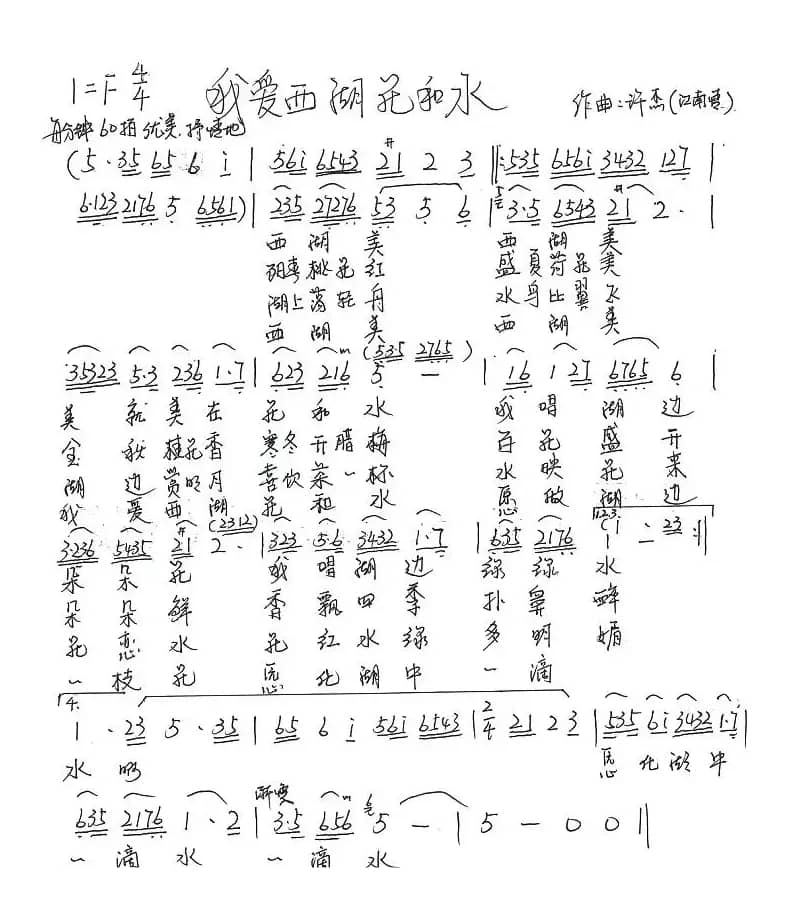 1=F 4/4 我爱西湖花和水 作曲:许杰(江南雪)
每分钟60拍 优美.抒情地
(5·35 65 6 i | 56i 6543 21 2 3 |: 535 656i 3432 127 |
6·123 2176 5 6561) | 235 27276 53 5 6 | 3·5 6543 21 2· |
西 湖 美 西 湖 美
阳春桃花红 盛夏荷花美
湖上荡轻舟 水鸟比翼飞
西 湖 美 西 湖 美
35323 5·3 236 1·7 | 623 216 5 — (535 2765) | 16 1 27 6765 6 |
美 就 美 在 花 和 水 我 唱 湖 边
金 秋 桂花香 寒冬开腊梅 百 花 盛 开
湖 边 赏明月 喜饮茶一杯 水 映 花 来
我 爱 西 湖 花 和 水 愿 做 湖 边
3·236 5435 21 2· (2312) | 323 5·6 3432 1·7 | 635 2176 1 (i — 23 :|
朵 朵 花 我 唱 湖 边 绿 绿 水
朵 朵 鲜 香 飘 四 季 扑 鼻 醉
花 恋 水 花 红 水 绿 多 明 媚
一 枝 花 愿 化 湖 中 一 滴
4. 1 · 23 5 · 35 | 65 6 i 56i 6543 | 2/4 21 2 3 | 535 6i 3432 1·7 |
水 啊 愿 化 湖 中
635 2176 1 · 2 | 渐慢 3·5 656 5 — | 5 — 0 0 ‖
一 滴 水 一 滴 水